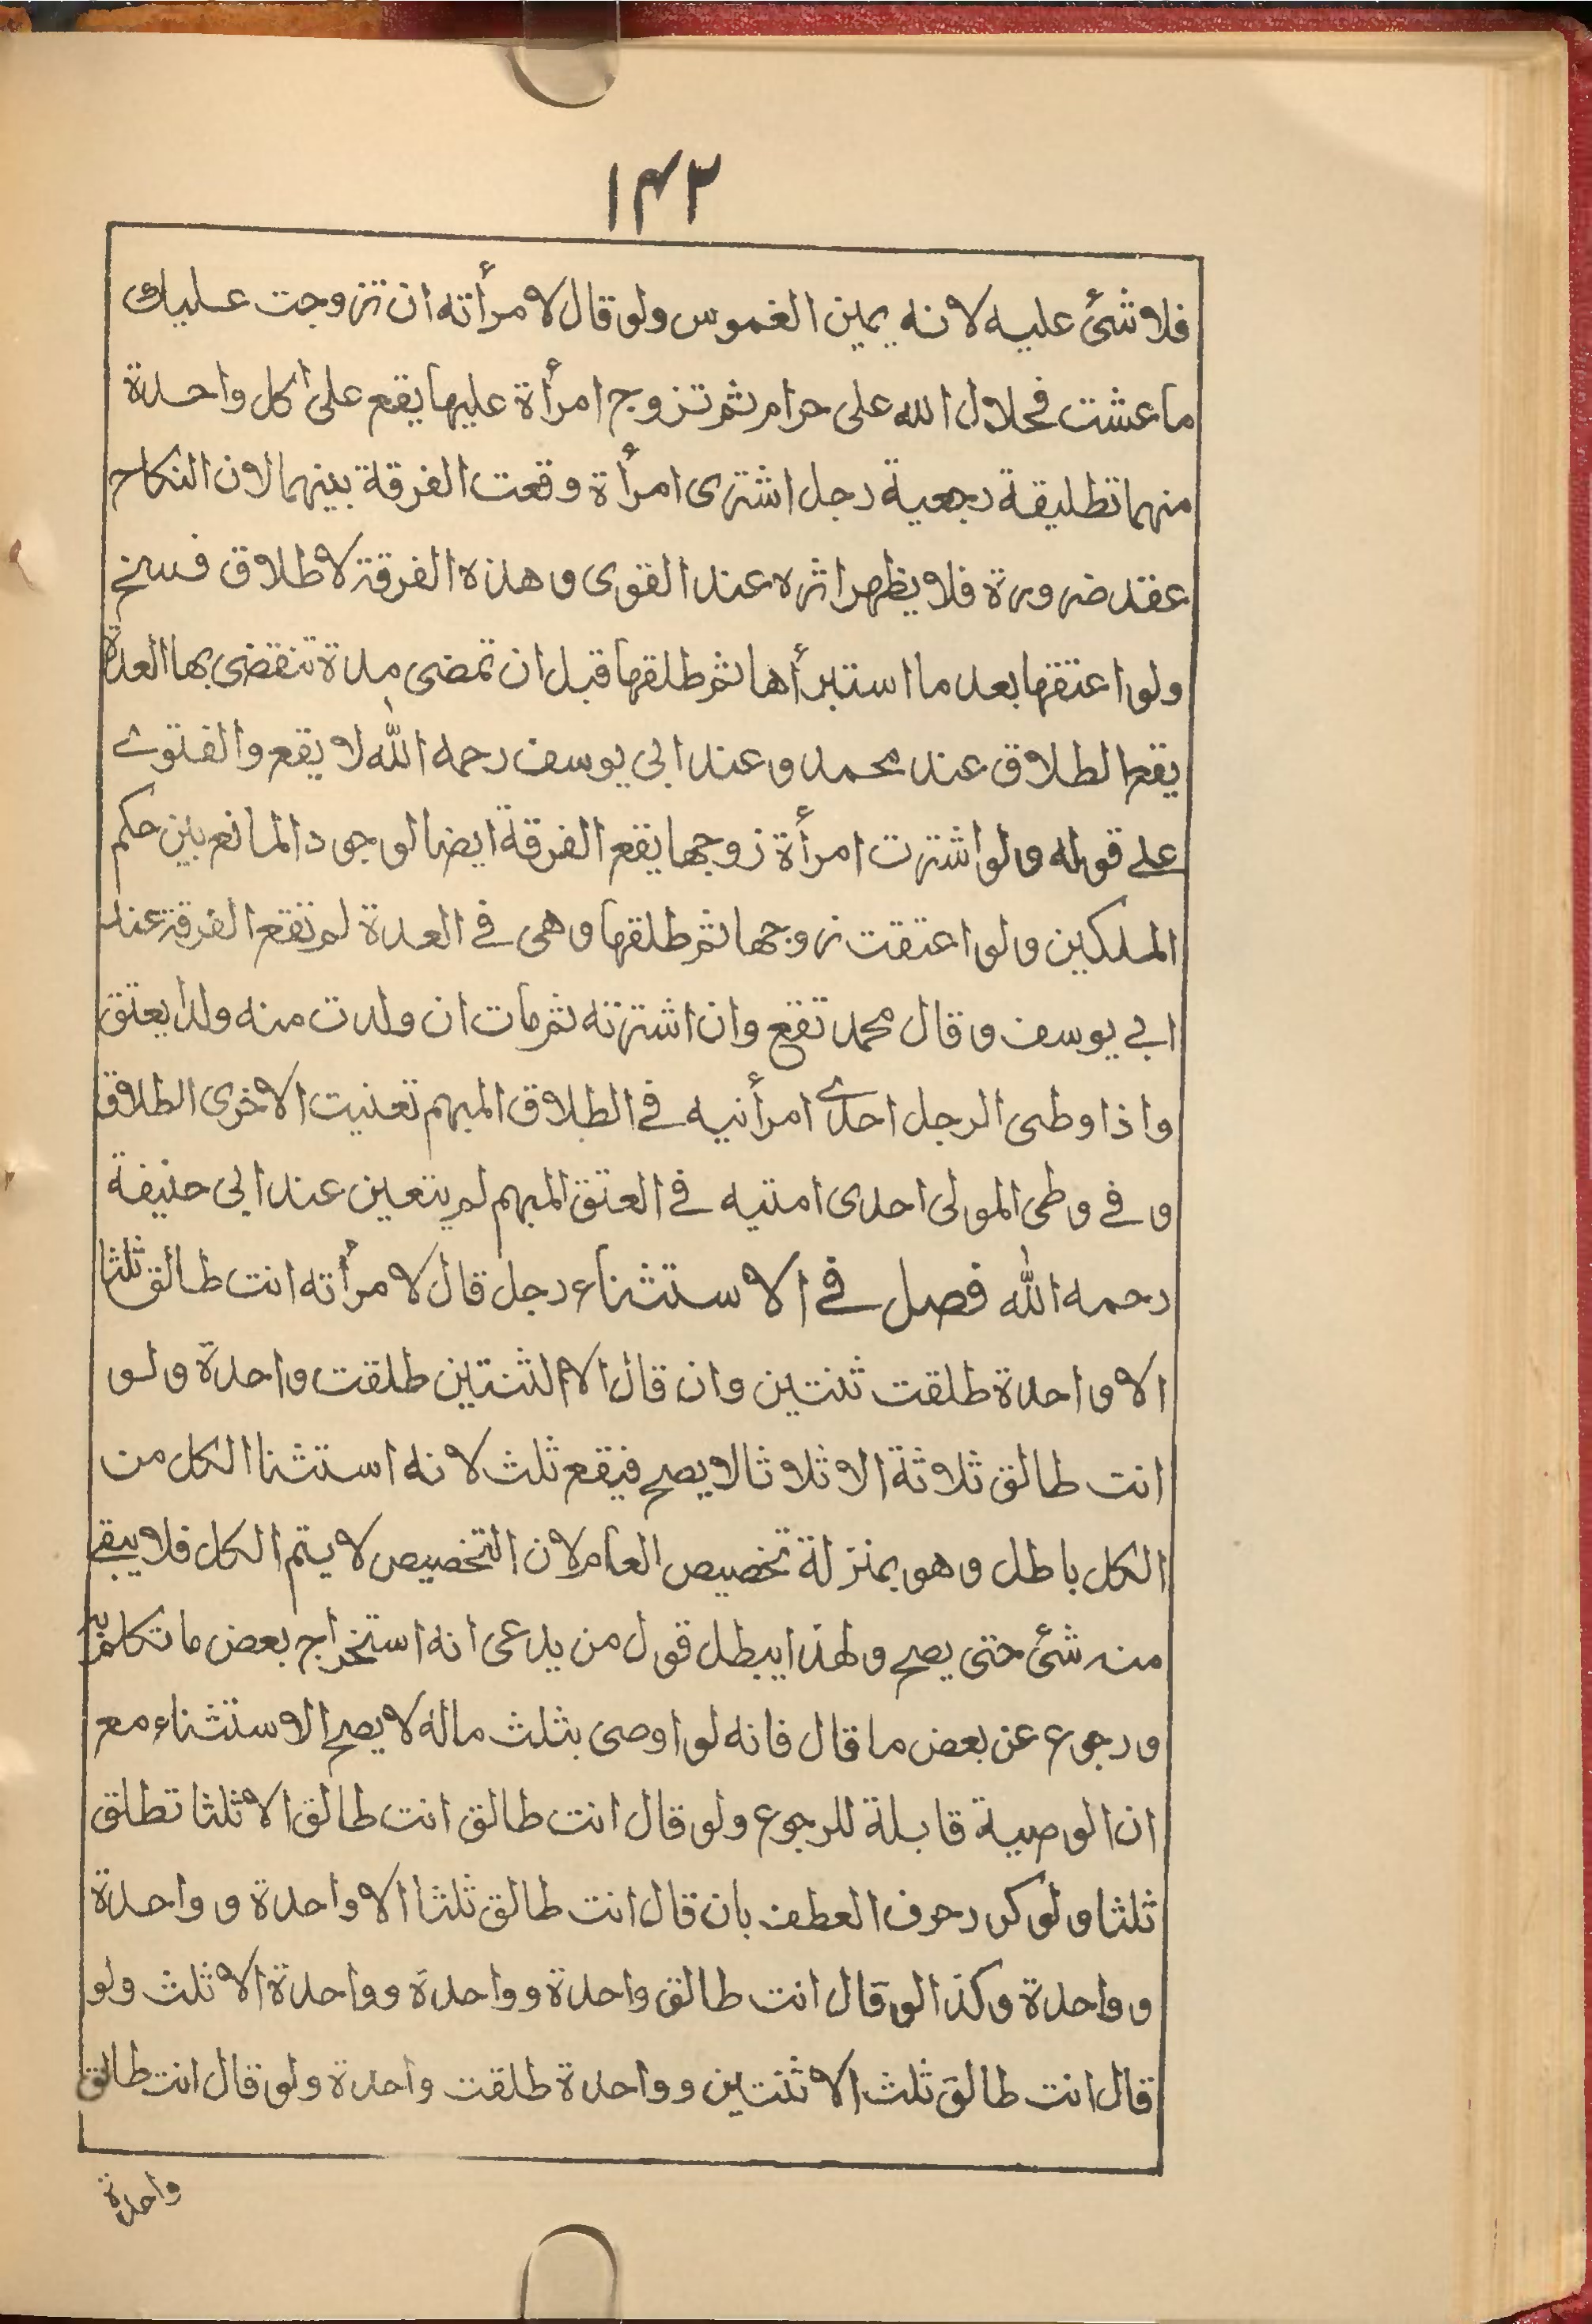 ١٤٢
فلا شئ عليه لانه يمين الغموس ولو قال لامرأته ان تزوجت عليك
ما عشت فحلال الله على حرام ثم تزوج امرأة عليها يقع على كل واحدة
منهما تطليقة رجعية رجل اشترى امرأة وقعت الفرقة بينهما لان النكاح
عقد ضرورة فلا يظهر اثره عند القوى و هذه الفرقة لا طلاق فسخ
ولو اعتقها بعد ما استبرأها ثم طلقها قبل ان تمضى مدة تنقضى بها العدة
يقع الطلاق عند محمد و عند ابى يوسف رحمه الله لا يقع والفتوے
علے قوله ولو اشترت امرأة زوجها يقع الفرقة ايضا لوجود المانع بين حكم
الملكين ولو اعتقت زوجها ثم طلقها و هى فے العدة لم تقع الفرقة عند
ابے يوسف و قال محمد تقع وان اشترته ثم مات ان ولدت منه ولدا يعتق
واذا وطى الرجل احدے امرأتيه فے الطلاق المبهم تعنيت الاخرى الطلاق
و فے وطى المولى احدى امتيه فے العتق المبهم لم يتعين عند ابى حنيفة
رحمه الله فصل فے الاستثناء رجل قال لامرأته انت طالق ثلثا
الا واحدة طلقت ثنتين وان قال الا الثنتين طلقت واحدة ولو
انت طالق ثلاثة الا ثلاثا لا يصح فيقع ثلث لانه استثنا الكل من
الكل باطل و هو بمنزلة تخصيص العام لان التخصيص لا يتم الكل فلا يبقے
منه شئ حتى يصح و لهذا يبطل قول من يدعى انه استخراج بعض ما تكلم به
و رجوع عن بعض ما قال فانه لو اوصى بثلث ماله لا يصح الاستثناء مع
ان الوصية قابلة للرجوع ولو قال انت طالق انت طالق الا ثلثا تطلق
ثلثا و لو كرر حرف العطف بان قال انت طالق ثلثا الا واحدة و واحدة
و واحدة و كذا لو قال انت طالق واحدة و واحدة و واحدة الا ثلث ولو
قال انت طالق ثلث الا ثنتين و واحدة طلقت واحدة ولو قال انت طالق
واحدة